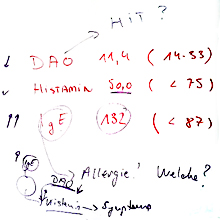 HIT?
↓ DAO 11,4 (14-33)
✓ HISTAMIN 50,0 (< 75)
↑↑ IgE 132 (< 87)
? IgE Allergie! Welche?
DAO ↓
→ Symptome